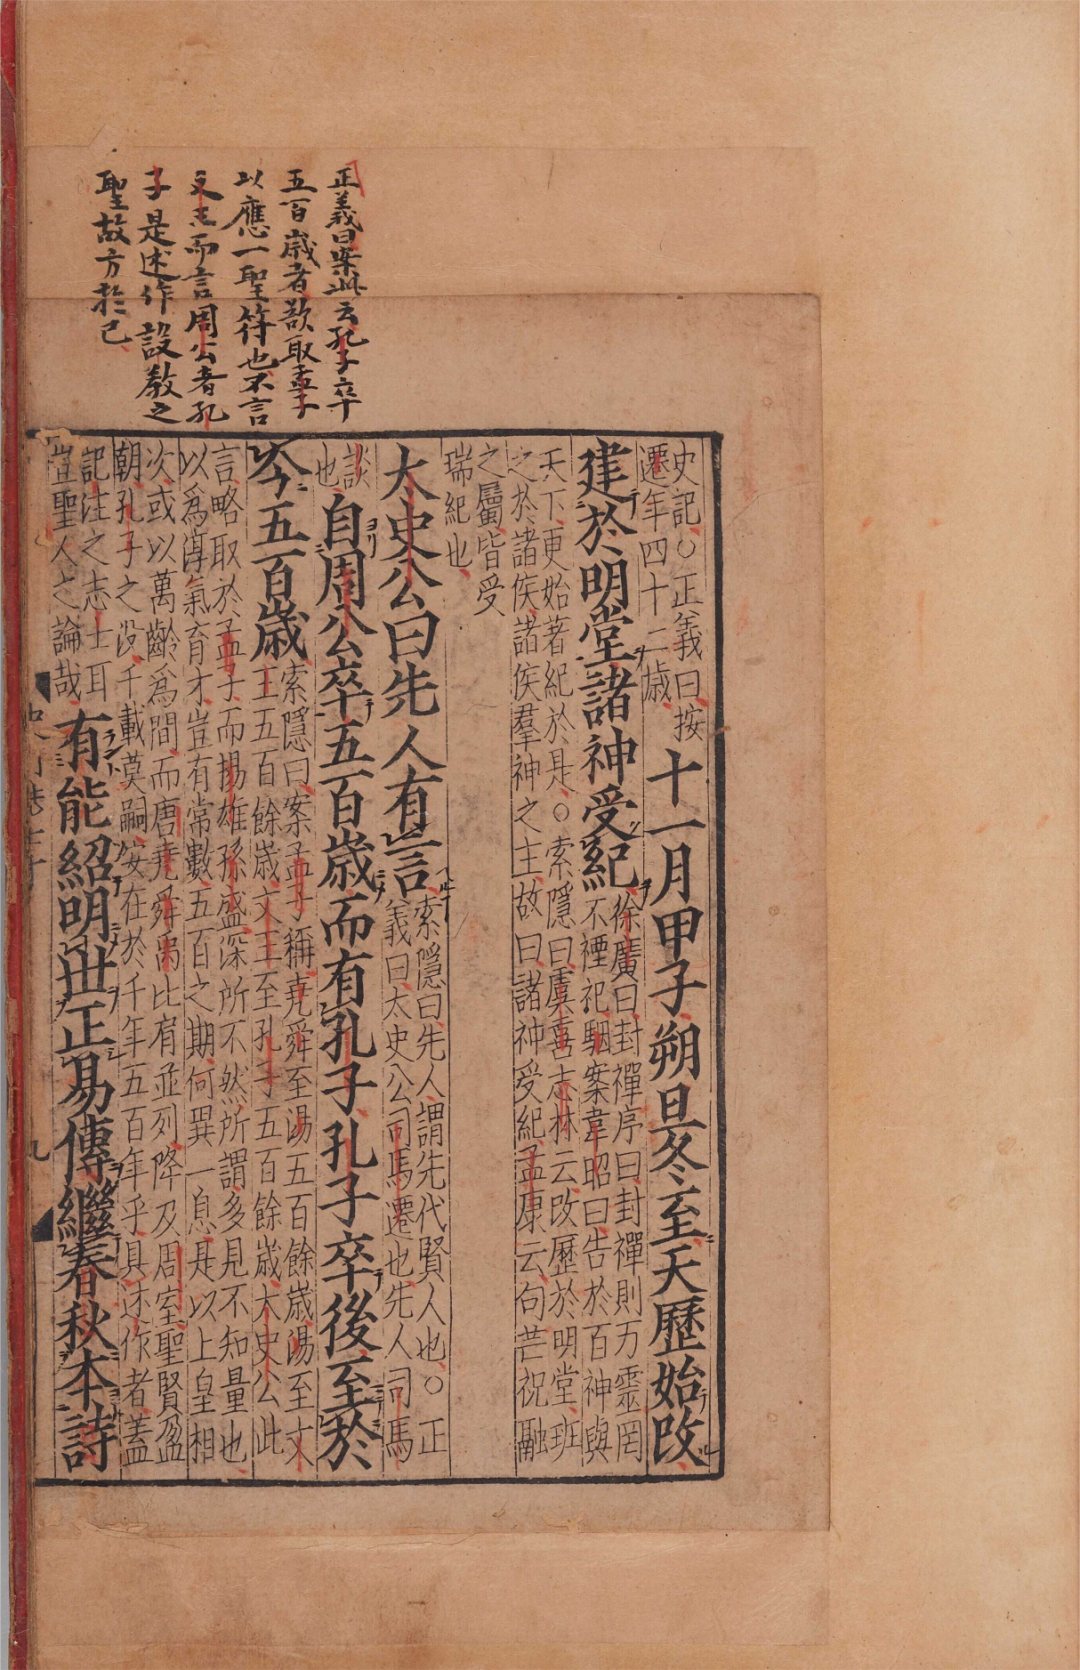 正義曰案此云孔子卒
五百歲者歆取孟子
以應一聖符也不言
文王而言周公者孔
子是述作設教之
聖故方於已
史記○正義曰按
遷年四十二歲
十一月甲子朔旦冬至天歷始改
建於明堂諸神受紀
徐廣曰封禪序曰封禪則万靈罔
不禋祀駰案韋昭曰告於百神與
天下更始著紀於是○索隱曰虞喜志林云改歷於明堂班
之於諸侯諸侯羣神之主故曰諸神受紀孟康云句芒祝融
之屬皆受
瑞紀也
太史公曰先人有言
索隱曰先人謂先代賢人也○正
義曰太史公司馬遷也先人司馬
談
也
自周公卒五百歲而有孔子孔子卒後至於
今五百歲
索隱曰案孟子稱堯舜至湯五百餘歲湯至文
王五百餘歲文王至孔子五百餘歲太史公此
言略取於孟子而揚雄孫盛深所不然所謂多見不知量也
以爲淳氣育才豈有常數五百之期何異一息是以上皇相
次或以萬齡爲間而唐堯舜禹比肩並列降及周室聖賢盈
朝孔子之没千載莫嗣安在於千年五百年乎具述作者蓋
記注之志士耳
豈聖人之論哉
有能紹明世正易傳繼春秋本詩
九